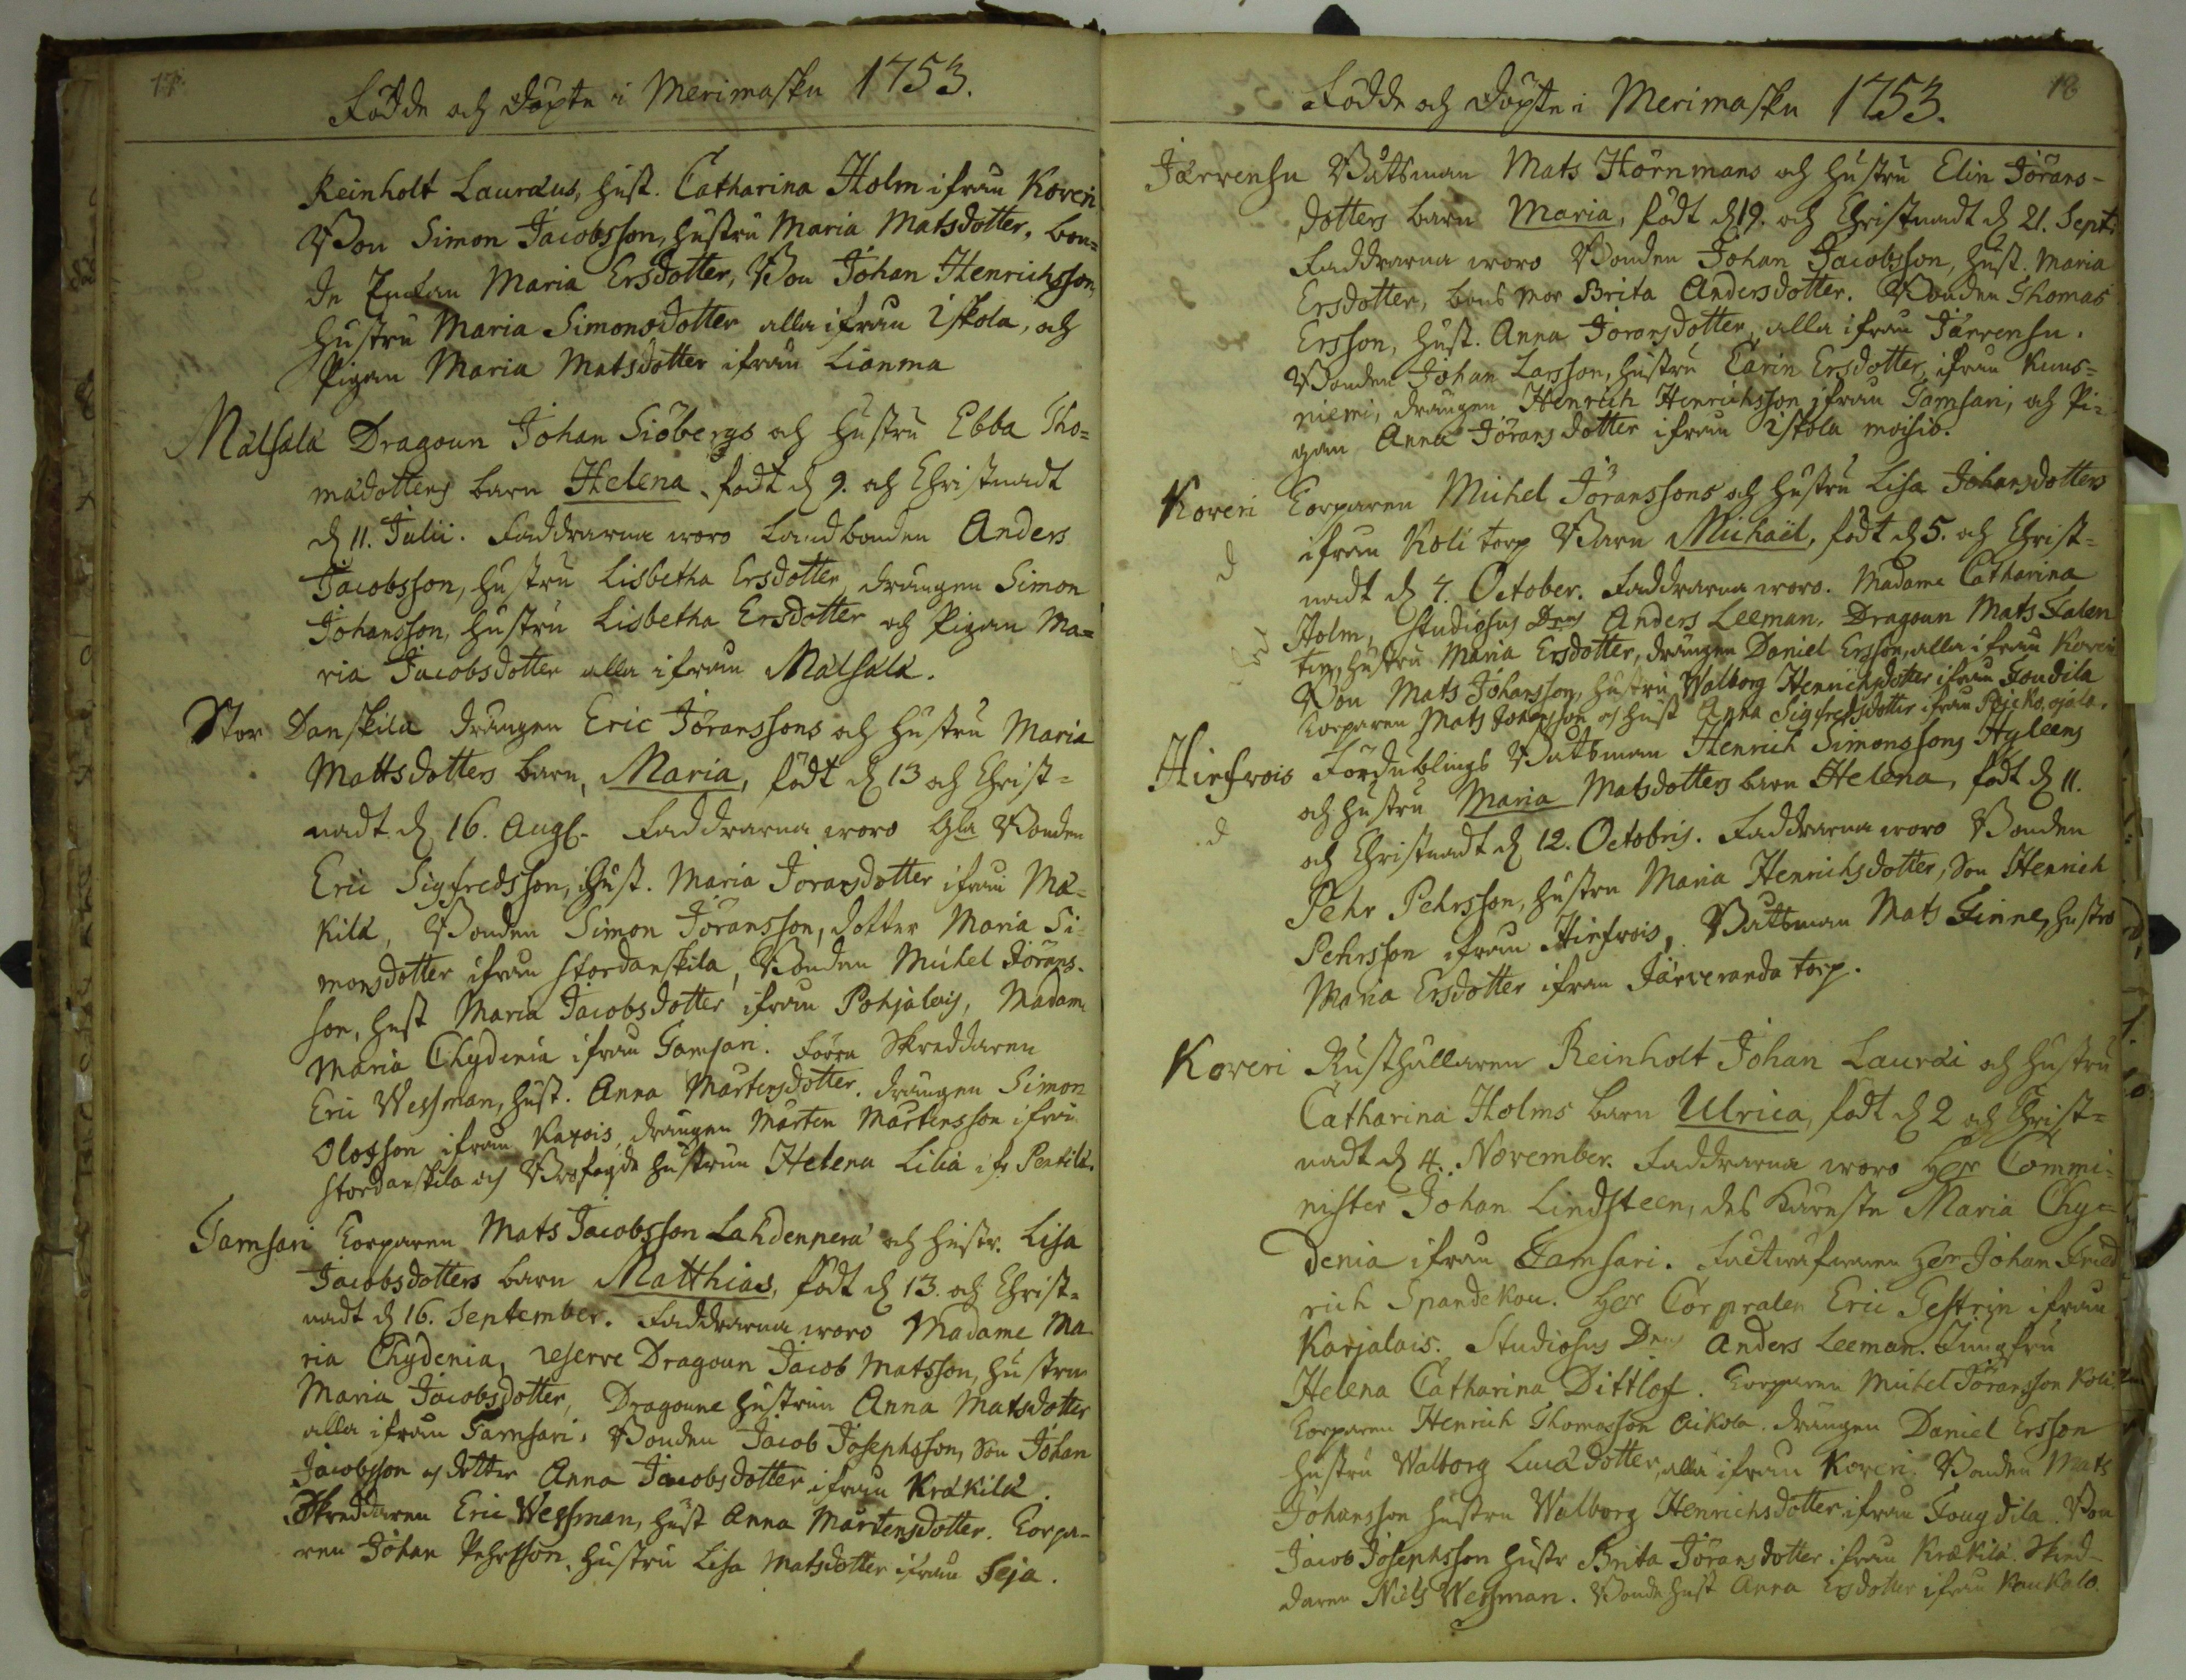 17.
Födde och döpte i Merimasku 1753.
Reinholt Lauræus, hust. Catharina Holm ifrån Koveri
Bon Simon Jacobsson, hustru Maria Matsdotter, bon=
de Maria Ersdotter, Bon Johan Henrichsson,
hustru Maria Simonsdotter alla ifrån Iskola, och
Pigan Maria Matsdotter ifrån Lianma
Mälsälä Dragoun Johan Siöbergs och hustru Ebba Tho=
mädotters barn Helena, födt d. 9. och Christnadt
d. 11. Julii. Faddrarna woro Landbonden Anders
Jacobsson, hustru Lisbetha Ersdotter, drängen Simon
Johansson, hustru Lisbetha Ersdotter och Pigan Ma=
ria Jacobsdotter alla ifrån Mälsälä.
Stor Danskila drängen Eric Jöranssons och hustru Maria
Mattsdotters barn, Maria, födt d. 13 och Christ=
nadt d. 16. Aug. Faddrarna woro Gla Bonden
Eric Sigfredsson, hust. Maria Jöransdotter ifrån Mä=
kilä, Bonden Simon Jöransson, dotter Maria Si=
monsdotter ifrån stordanskila, Bonden Michel Jörans-
son, hust Maria Jacobsdotter ifrån Pohjalais, Madame
Maria Chydenia ifrån Tamsari. Förra Skreddaren
Eric Wessman, hust. Anna Mårtensdotter. drängen Simon
Olofsson ifrån Kaxois, drängen Mårten Mårtensson ifrån
stordanskila och hustrun Helena Lilia ifr Pentilä.
Tamsari Torparen Mats Jacobsson Lahdenperä och hustr. Lisa
Jacobsdotters barn Matthias, födt d. 13. och Christ=
nadt d. 16. September. Faddrarna woro Madame Ma
ria Chydenia, reserve Dragoun Jacob Matsson, hustru
Maria Jacobsdotter, Dragoune hustrun Anna Matsdotter
alla ifrån Tamsari. Bonden Jacob Josephsson, Son Johan
Jacobsson och dotter Anna Jacobsdotter ifrån Kräkilä.
Skreddaren Eric Wessman, hust Anna Mårtensdotter. Torpa-
ren Johan Pehrsson, hustru Lisa Matsdotter ifrån Seja.
18
Födde och döpte i Merimasku 1753.
Järvensu Båtsman Mats Hörnmans och hustru Elin Jörans-
dotters barn Maria, födt d. 19. och Christnadt d. 21. Sept.
Faddrarna woro Bonden Johan Jacobsson, hust. Maria
Ersdotter, bons mor Brita Andersdotter. Bonden Thomas
Ersson, hust. Anna Jöransdotter, alla ifrån Järvensu.
Bonden Johan Larsson, hustru Carin Ersdotter, ifrån Kuus=
niemi, drängen Henrich Henrichsson ifrån Tamsari, och Pi=
gan Anna Jöransdotter ifrån Iskola moisio.
Koveri Torparen Michel Jöranssons och hustru Lisa Johansdotters
ifrån Koli torp Barn Michaël, födt d. 5. och Christ=
nadt d. 7. October. Faddrarna woro. Madame Catharina
Holm, studiosus Dns Anders Leeman. Dragoun Mats Falen
hustru Maria Ersdotter, drängen Daniel Ersson, alla ifrån Koveri
Bon Mats Johansson, hustru Walborg Henrichsdotter ifrån Foudila
Torparen Mats Johansson och hust Anna Sigfredsdotter ifrån
Hirfwois Fördublings Båtsman Henrich Simonssons Hyleens
och hustru Maria Matsdotters barn Helena, födt d. 11.
och Christnadt d. 12. Octobris. Faddrarna woro Bonden
Pehr Pehrsson, hustru Maria Henrichsdotter, Son Henrich
Pehrsson ifrån Hirfwois, Båtsman Mats Finne, hustru
Maria Ersdotter ifrån Järveranda torp.
Koveri Rusthållaren Reinholt Johan Lauræi och hustru
Catharina Holms barn Ulrica, födt d. 2 och Christ=
nadt d. 4. November. Faddrarna woro Herr Commi-
nister Johan Lindsteen, des Käreste Maria Chy=
denia ifrån Tamsari. Herr Johan Fried
rich Spandekou. Herr Corpralen Eric Gestrin ifrån
Karjalais. Studiosus Dns Anders Leeman. Jungfru
Helena Catharina Dittlof. Torparen Michel Jöransson Koli
Torparen Henrich Thomasson Aikola. drängen Daniel Ersson
hustru Walborg Lucædotter, alla ifrån Koveri. Bonden Mats
Johansson hustru Walborg Henrichsdotter ifrån Fougdila. Bon
Jacob Josephsson hustr Brita Jöransdotter ifrån Kräkilä. Skred-
daren Niels Wessman. Bonde hust Anna Ersdotter ifrån Kaukola.